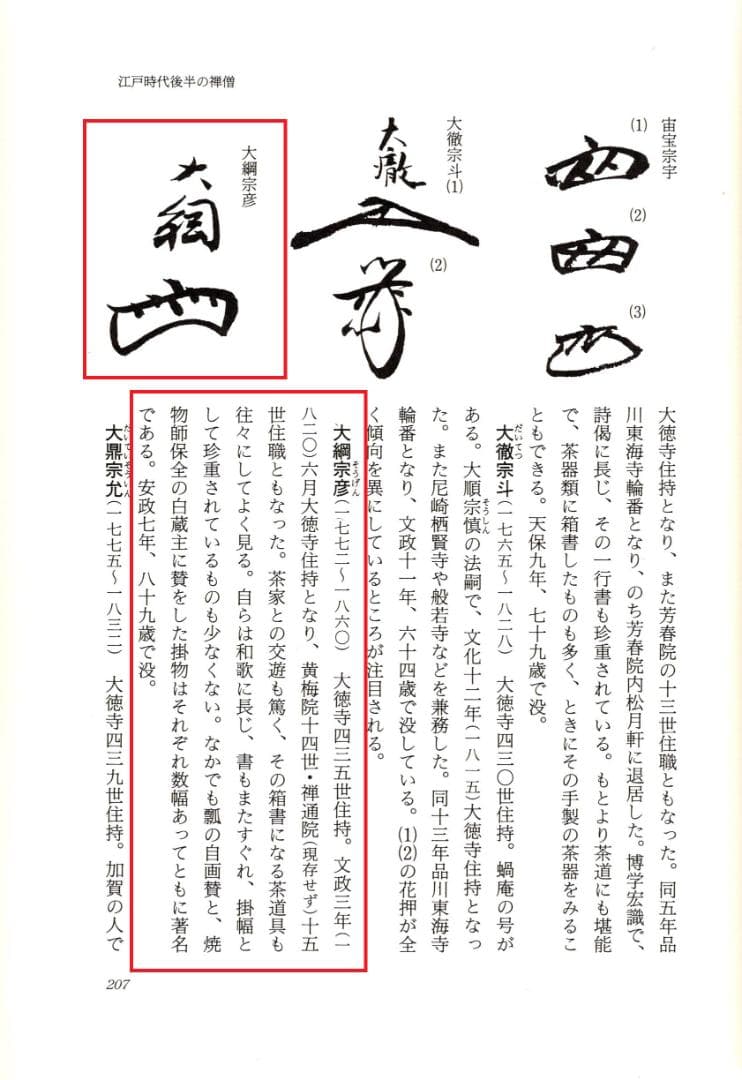 江戸時代後半の禅僧
宙宝宗宇
(1)
(2)
(3)
大徹宗斗(1)
大徹
(2)
大綱宗彦
大綱
大徳寺住持となり、また芳春院の十三世住職ともなった。同五年品
川東海寺輪番となり、のち芳春院内松月軒に退居した。博学宏識で、
詩偈に長じ、その一行書も珍重されている。もとより茶道にも堪能
で、茶器類に箱書したものも多く、ときにその手製の茶器をみるこ
ともできる。天保九年、七十九歳で没。
大徹宗斗(一七六五〜一八二八) 大徳寺四三〇世住持。蝸庵の号が
だいてつ
ある。大順宗慎の法嗣で、文化十二年(一八一五)大徳寺住持となっ
そうしん
た。また尼崎栖賢寺や般若寺などを兼務した。同十三年品川東海寺
輪番となり、文政十一年、六十四歳で没している。(1)(2)の花押が全
く傾向を異にしているところが注目される。
大綱宗彦(一七七二〜一八六〇) 大徳寺四三五世住持。文政三年(一
そうげん
八二〇)六月大徳寺住持となり、黄梅院十四世・禅通院(現存せず)十五
世住職ともなった。茶家との交遊も篤く、その箱書になる茶道具も
往々にしてよく見る。自らは和歌に長じ、書もまたすぐれ、掛幅と
して珍重されているものも少なくない。なかでも瓢の自画賛と、焼
物師保全の白蔵主に賛をした掛物はそれぞれ数幅あってともに著名
である。安政七年、八十九歳で没。
大鼎宗允(一七七五〜一八三二) 大徳寺四三九世住持。加賀の人で
だいていそういん
207